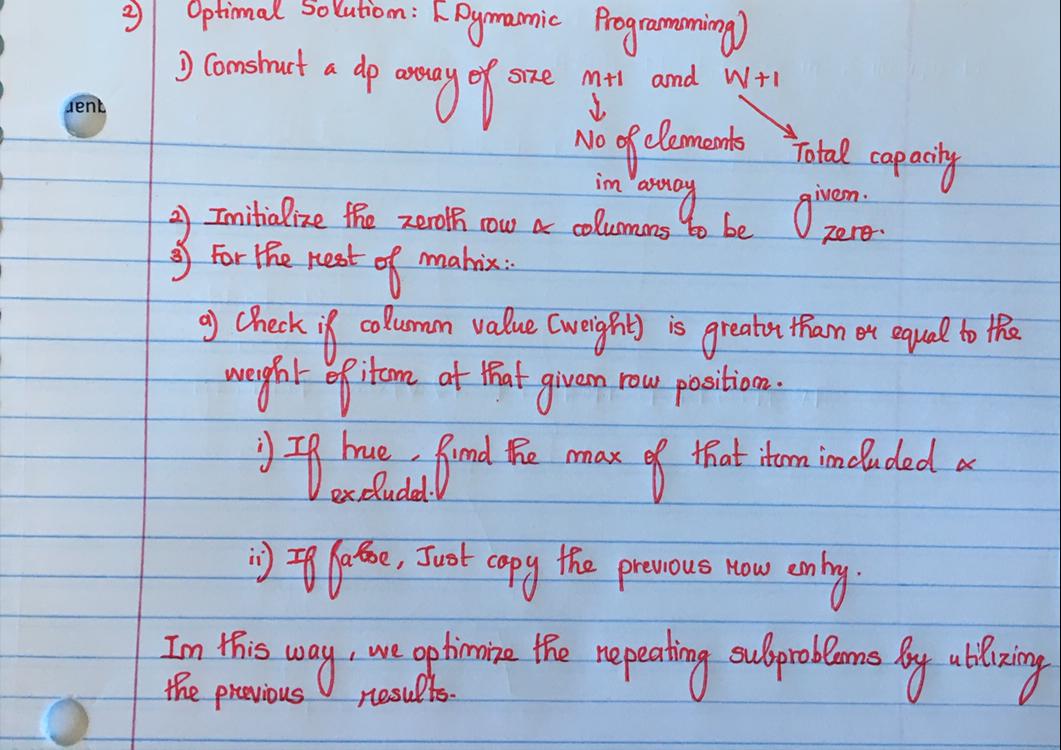 2) Optimal Solution: [Dynamic Programming)
1) Construct a dp array of size n+1 and W+1
No of elements
in array
Total capacity
given.
2) Initialize the zeroth row & columns to be zero.
3) For the rest of matrix:-
a) Check if column value (weight) is greater than or equal to the
weight of item at that given row position.
i) If true, find the max of that item included &
excluded.
ii) If false, Just copy the previous row entry.
In this way, we optimize the repeating subproblems by utilizing
the previous results.